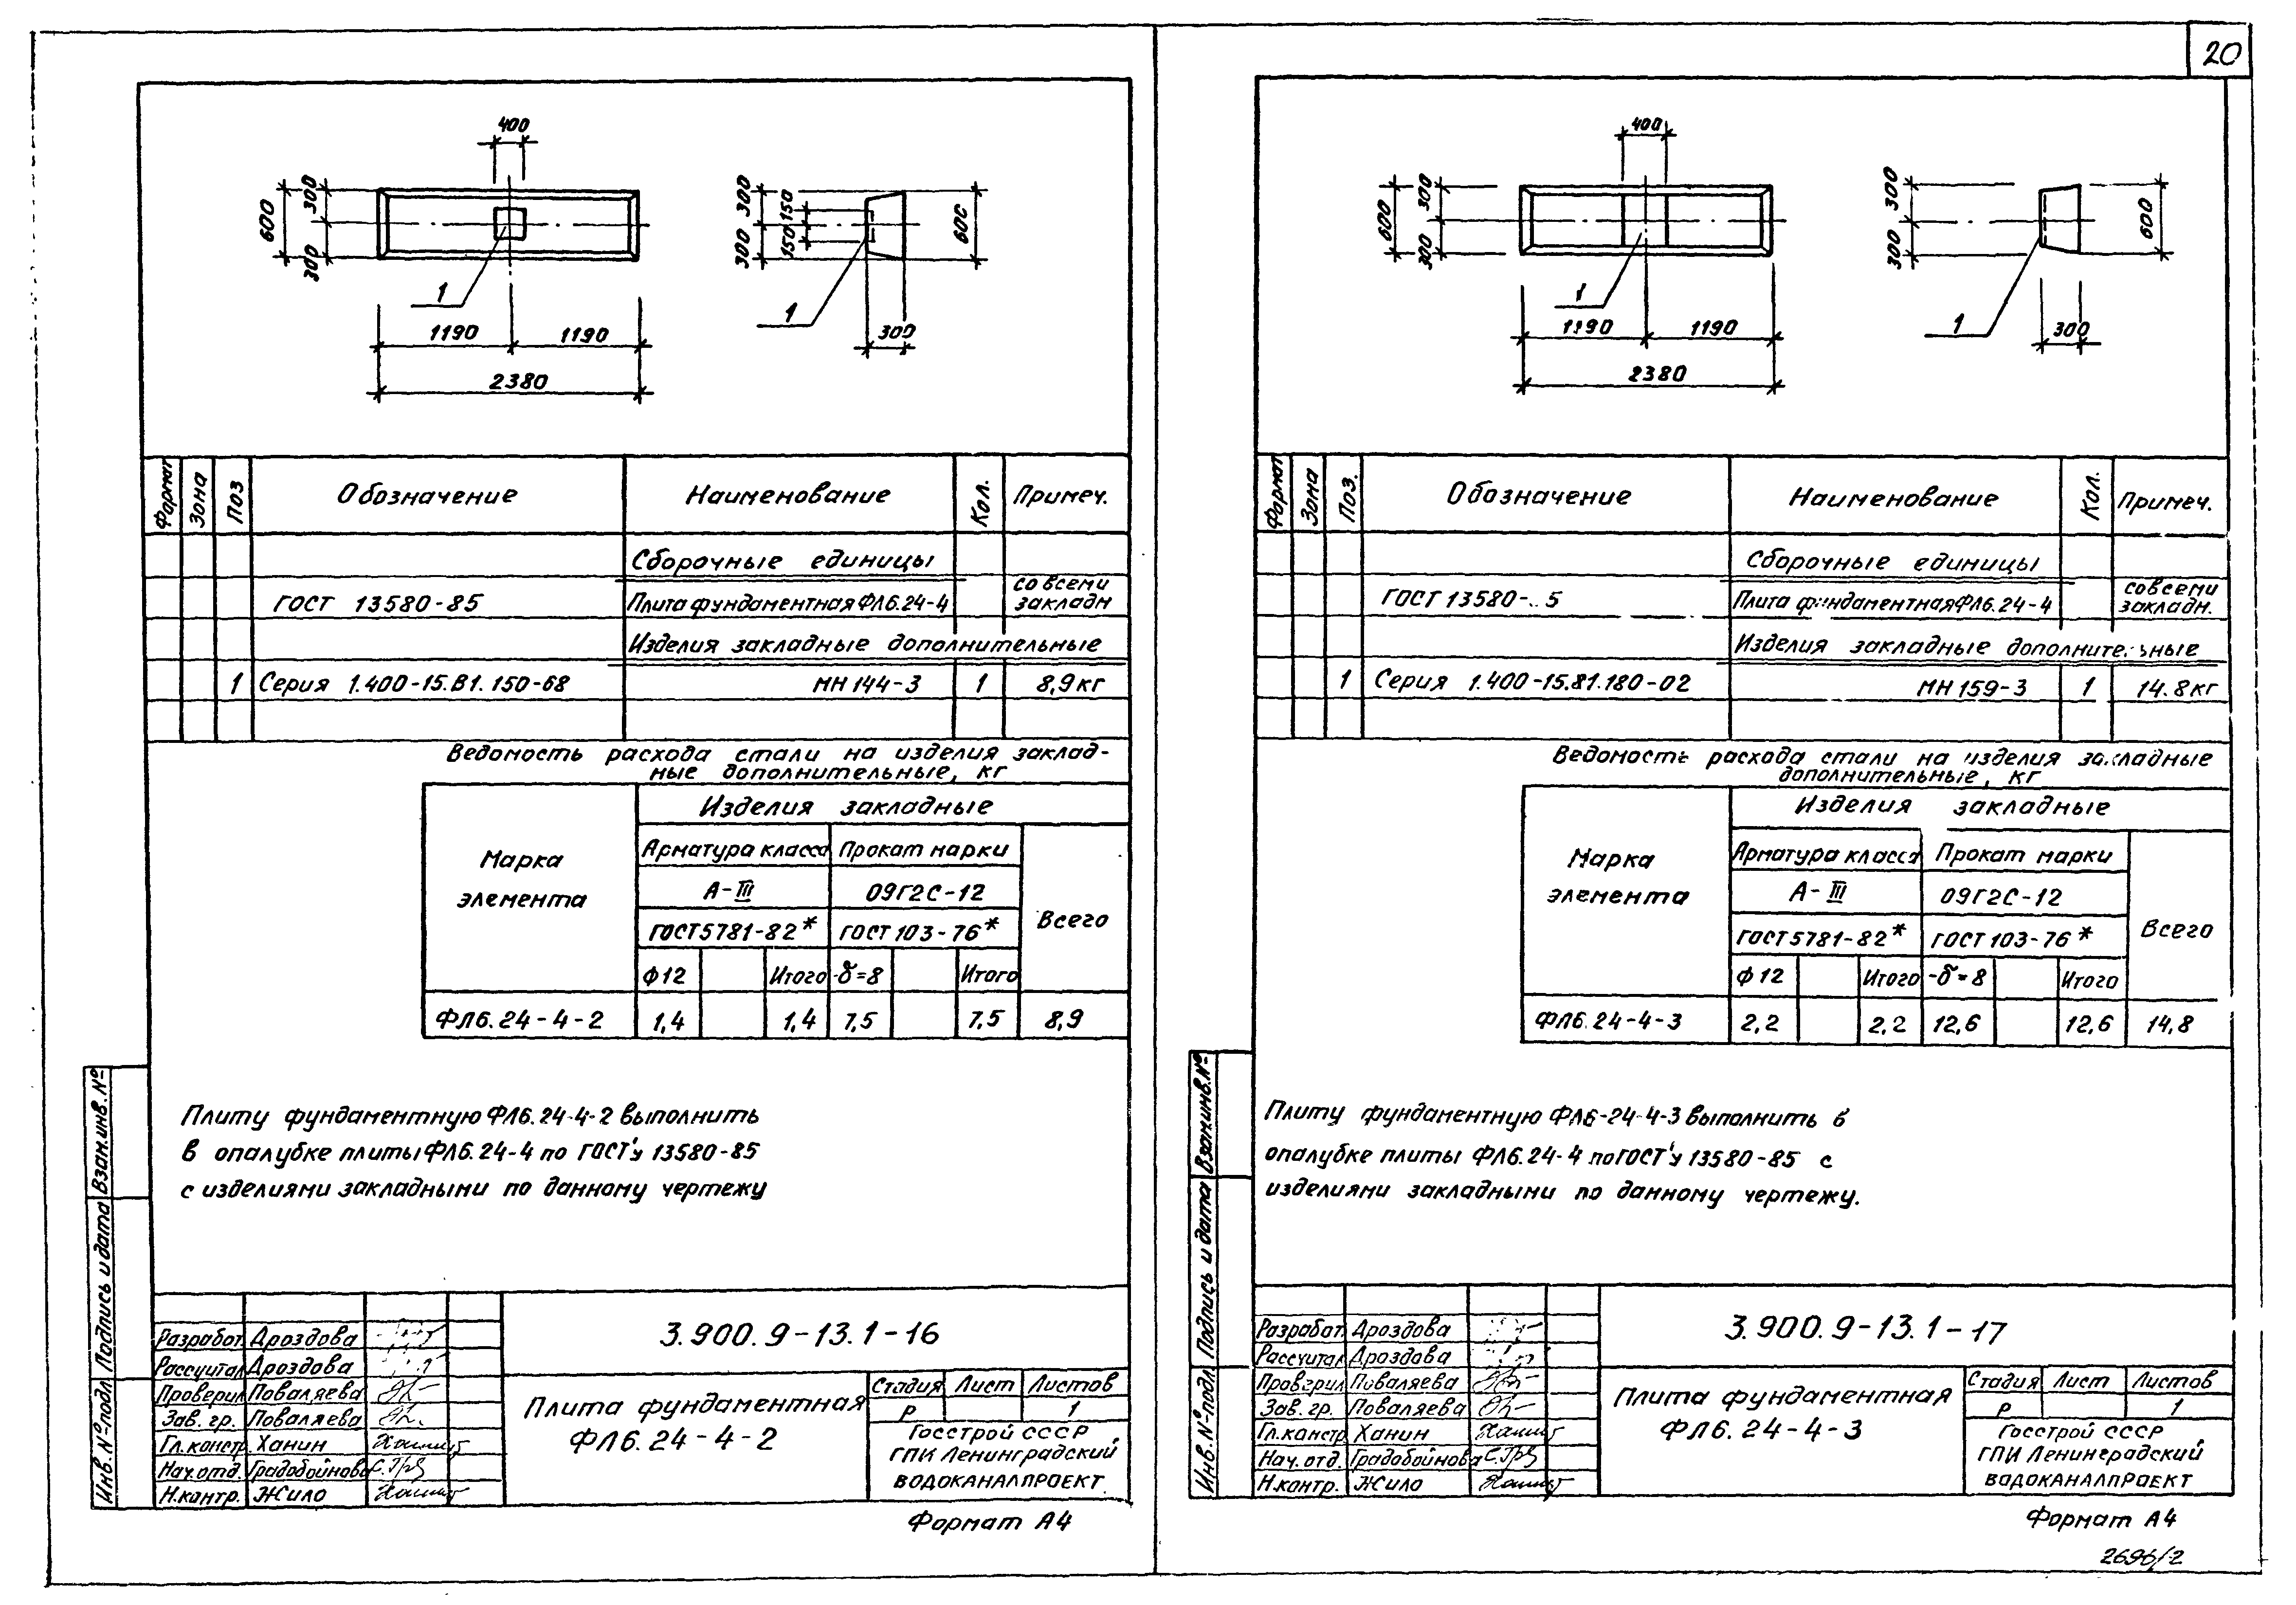 20
400
600
300
300
1
1190
1190
2380
300
300
150
150
600
1
300
Формат
Зона
Поз
Обозначение
Наименование
Кол.
Примеч.
Сборочные единицы
ГОСТ 13580-85
Плита фундаментная ФЛ6.24-4
со всеми закладн
Изделия закладные дополнительные
1 Серия 1.400-15.В1.150-68 МН 144-3 1 8,9кг
Ведомость расхода стали на изделия заклад-
ные дополнительные, кг
Марка элемента
Изделия закладные
Арматура класса
Прокат марки
Всего
А-III
09Г2С-12
ГОСТ 5781-82*
ГОСТ 103-76*
Ф12
Итого
-δ=8
Итого
ФЛ6.24-4-2 1,4 1,4 7,5 7,5 8,9
Плиту фундаментную ФЛ6.24-4-2 выполнить
в опалубке плиты ФЛ6.24-4 по ГОСТ'у 13580-85
с изделиями закладными по данному чертежу
Взам.инв.№
Подпись и дата
Инв.№подл.
Разработ. Дроздова
Рассчитал Дроздова
Проверил Поваляева
Зав. гр. Поваляева
Гл.констр. Ханин
Нач.отд. Градобойнова
Н.контр. Жило
3.900.9-13.1-16
Плита фундаментная
ФЛ6.24-4-2
Стадия Лист Листов
Р 1
Госстрой СССР
ГПИ Ленинградский
ВОДОКАНАЛПРОЕКТ
Формат А4
400
600
300
300
1
1190
1190
2380
300
300
600
1
300
Формат
Зона
Поз.
Обозначение
Наименование
Кол.
Примеч.
Сборочные единицы
ГОСТ 13580-..5
Плита фундаментная ФЛ6.24-4
со всеми закладн.
Изделия закладные дополнительные
1 Серия 1.400-15.В1.180-02 МН 159-3 1 14.8кг
Ведомость расхода стали на изделия закладные
дополнительные, кг
Марка элемента
Изделия закладные
Арматура класса
Прокат марки
Всего
А-III
09Г2С-12
ГОСТ 5781-82*
ГОСТ 103-76*
Ф12
Итого
-δ=8
Итого
ФЛ6.24-4-3 2,2 2,2 12,6 12,6 14,8
Плиту фундаментную ФЛ6-24-4-3 выполнить в
опалубке плиты ФЛ6.24-4 по ГОСТ'у 13580-85 с
изделиями закладными по данному чертежу.
Взам.инв.№
Подпись и дата
Инв.№подл.
Разработ. Дроздова
Рассчитал Дроздова
Проверил Поваляева
Зав. гр. Поваляева
Гл.констр Ханин
Нач.отд. Градобойнова
Н.контр. Жило
3.900.9-13.1-17
Плита фундаментная
ФЛ6.24-4-3
Стадия Лист Листов
Р 1
Госстрой СССР
ГПИ Ленинградский
ВОДОКАНАЛПРОЕКТ
Формат А4
2696/2